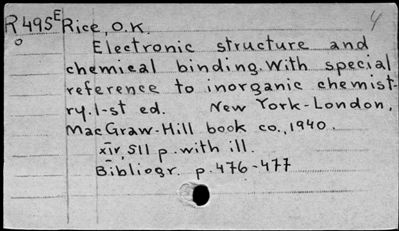 R495E Rice, O.K. 4
Electronic structure and
chemical binding. With special
reference to inorganic chemist-
ry. 1-st ed. New York-London,
MacGraw-Hill book co., 1940.
xiv, 511 p. with ill.
Bibliogr. p. 476-477